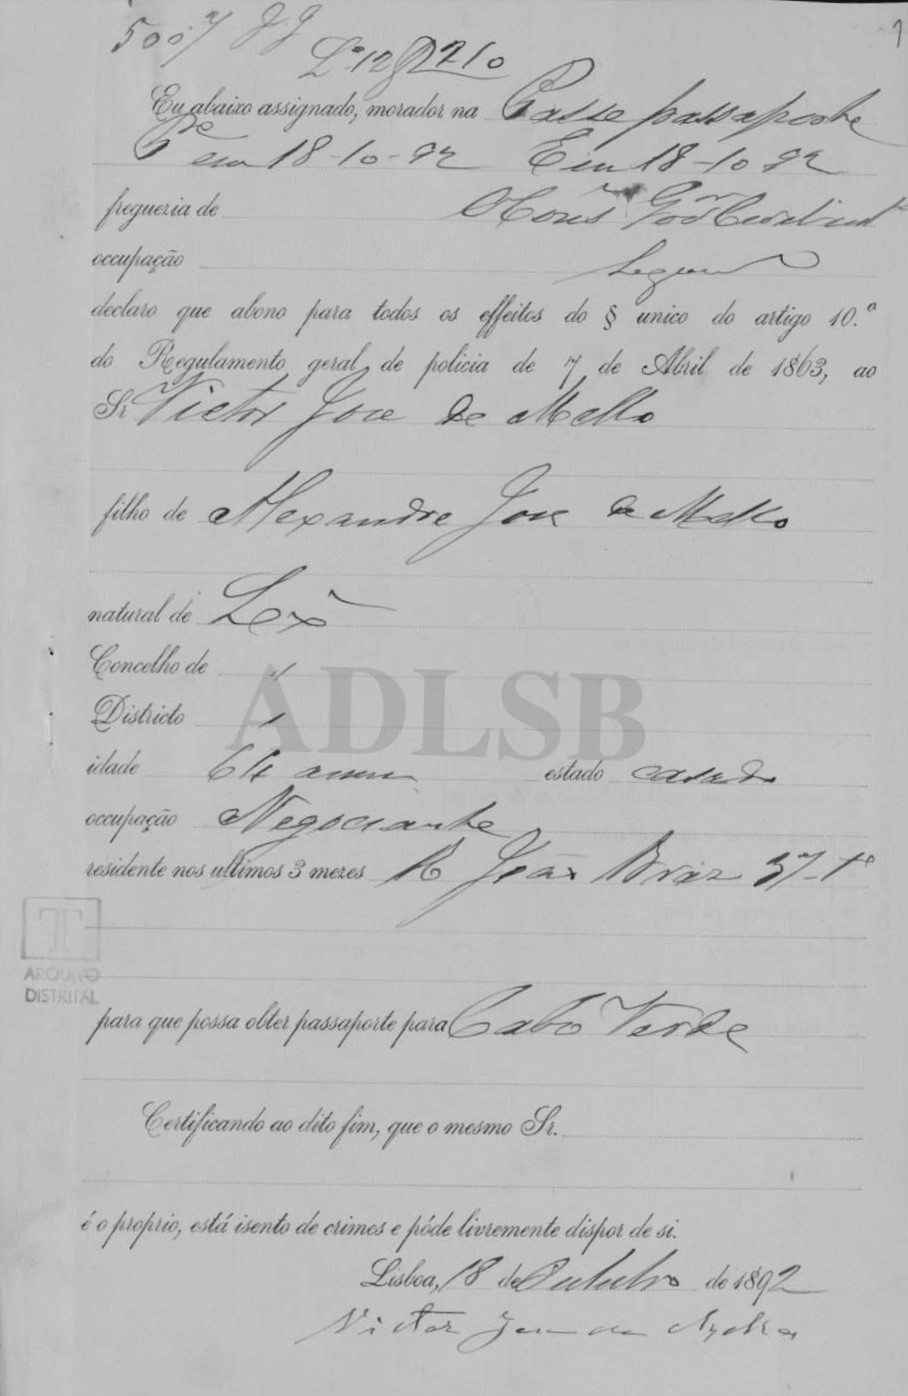 5007 JJ
1
Lº 12 f 2210
Eu abaixo assignado, morador na Passe passaporte
Pe em 18-10-92 Em 18-10-92
freguezia de
occupação
declaro que abono para todos os effeitos do § unico do artigo 10.º
do Regulamento geral de policia de 7 de Abril de 1863, ao
Sr Victor Jose de Mello
filho de Alexandre Jose de Mello
natural de Lxª
Concelho de "
Districto "
idade 64 annos estado casado
occupação Negociante
residente nos ultimos 3 mezes R João Braz 37-1º
para que possa obter passaporte para Cabo Verde
Certificando ao dito fim, que o mesmo Sr.
é o proprio, está isento de crimes e póde livremente dispor de si.
Lisboa, 18 de Outubro de 1892
Victor Jose de Mello
ADLSB
ARQUIVO
DISTRITAL